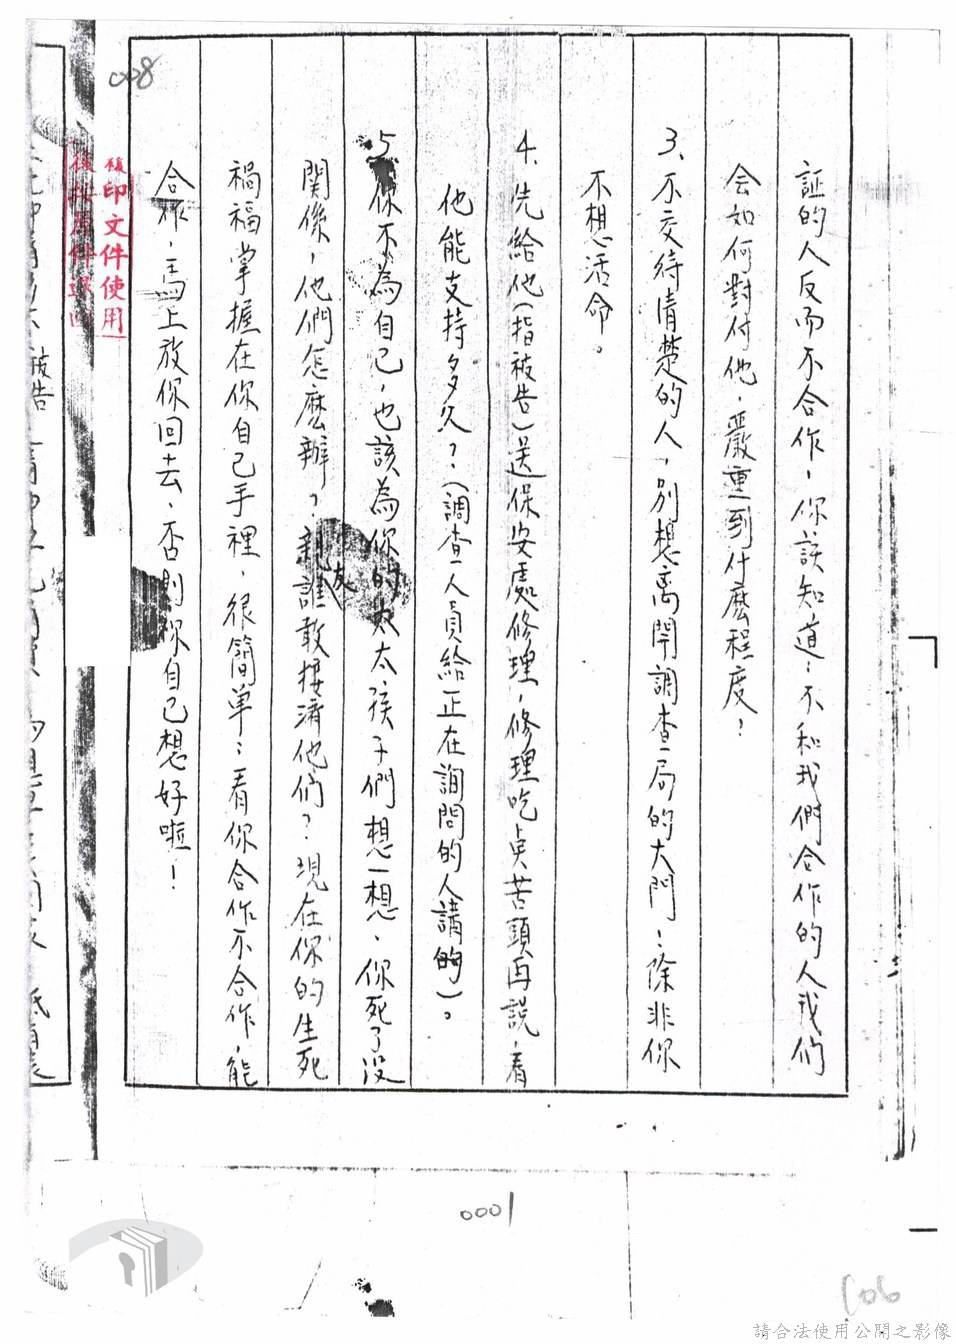 008
証的人反而不合作，你該知道：不和我們合作的人我們
会如何對付他，嚴重到什麼程度！
3、不交待清楚的人，別想离開調查局的大門：除非你
不想活命。
4、先給他(指被告)送保安處修理，修理吃点苦頭再說，看
他能支持多久？(調查人員給正在詢問的人講的)。
5、你不為自己，也該為你的太太孩子們想一想、你死了没
関係，他們怎麼辦？親族誰敢接濟他們？現在你的生死
禍福掌握在你自己手裡，很簡单：看你合作不合作，能
合作，馬上放你回去，否則你自己想好啦！
複印文件使用
後按原件退回
被告
0001
006
請合法使用公開之影像